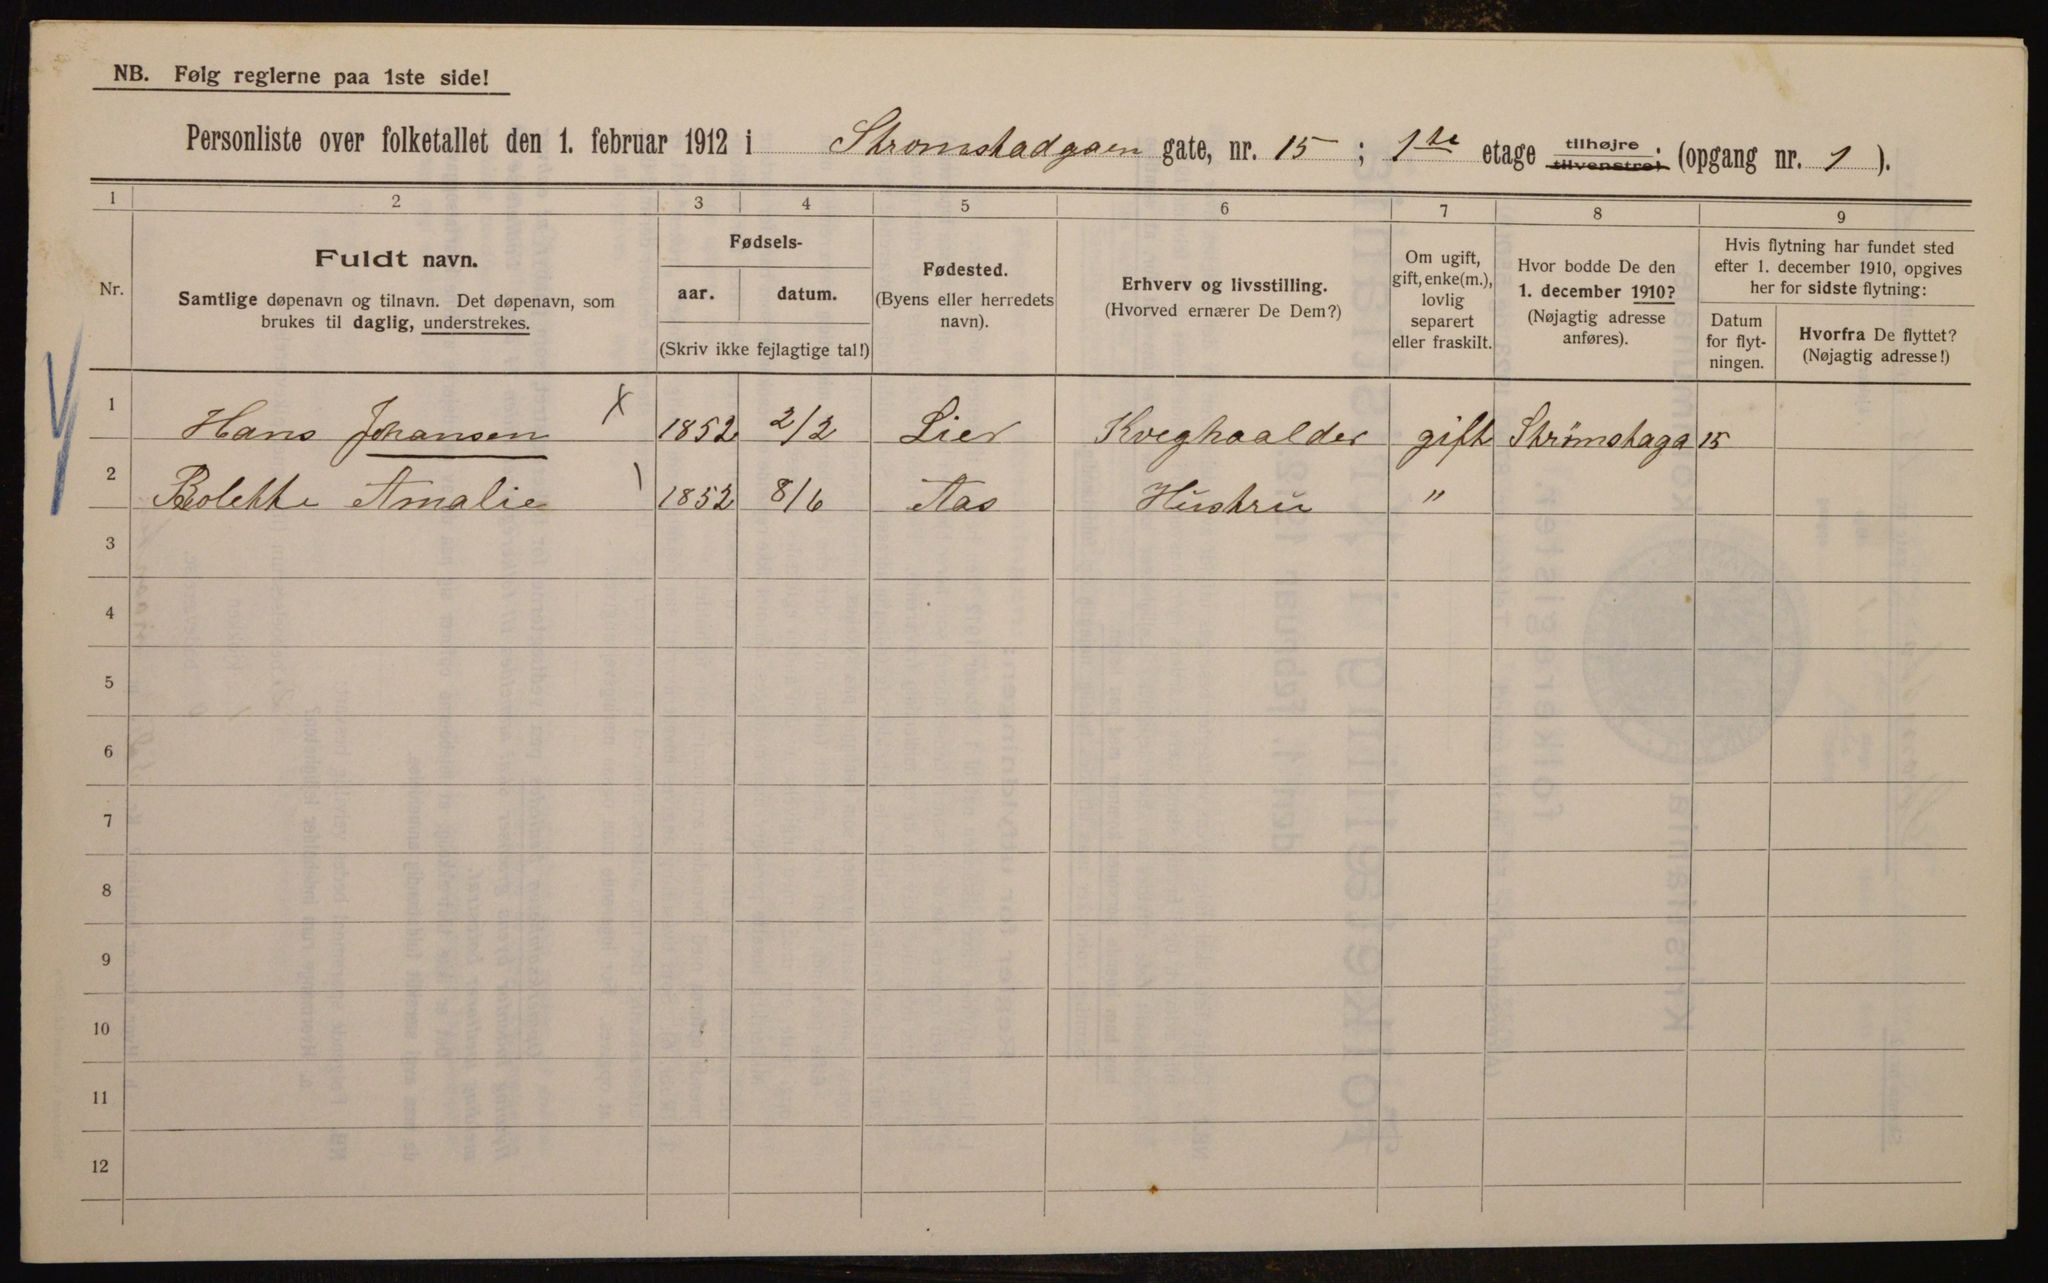 NB. Følg reglerne paa 1ste side!
Personliste over folketallet den 1. februar 1912 i Strømstadgaen gate, nr. 15; 1ste etage tilhøjre tilvenstre; (opgang nr. 1).
1 2 3 4 5 6 7 8 9
Nr.
Fuldt navn.
Samtlige døpenavn og tilnavn. Det døpenavn, som
brukes til daglig, understrekes.
Fødsels-
aar. datum.
(Skriv ikke fejlagtige tal!)
Fødested.
(Byens eller herredets
navn).
Erhverv og livsstilling.
(Hvorved ernærer De Dem?)
Om ugift,
gift, enke(m.),
lovlig
separert
eller fraskilt.
Hvor bodde De den
1. december 1910?
(Nøjagtig adresse
anføres).
Hvis flytning har fundet sted
efter 1. december 1910, opgives
her for sidste flytning:
Datum
for flyt-
ningen.
Hvorfra De flyttet?
(Nøjagtig adresse!)
1 Hans Johansen X 1852 2/2 Lier Kveghaalder gift Strømstaga 15
2 Bolette Amalie 1852 8/6 Aas Hustru "
3
4
5
6
7
8
9
10
11
12